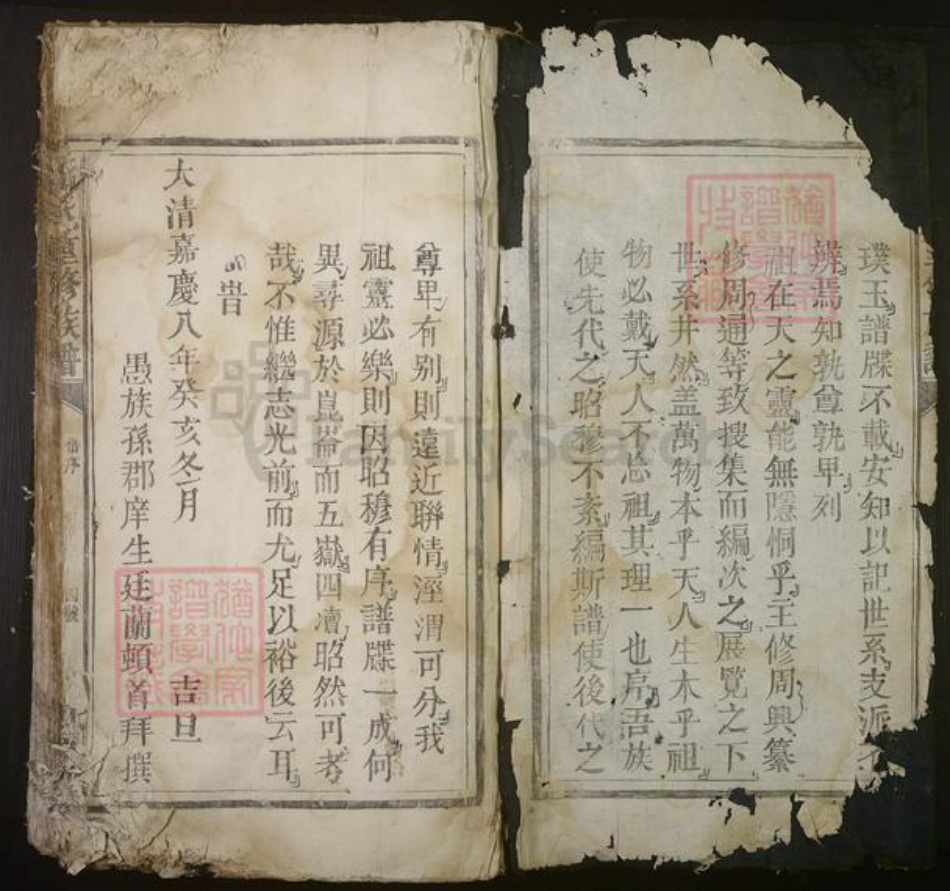 璞玉譜牒不載安知以記世系支派不
辨焉知孰尊孰卑列
祖在天之靈能無隱恫乎主修周興纂
修周通等致搜集而編次之展覽之下
世系井然蓋萬物本乎天人生本乎祖
物必戴天人不忘祖其理一也序吾族
使先代之昭穆不紊編斯譜使後代之
尊卑有别則遠近聯情涇渭可分我
祖靈必樂則因昭穆有序譜牒一成何
異尋源於崑崙而五嶽四瀆昭然可考
哉不惟繼志光前而尤足以裕後云耳
旹
大清嘉慶八年癸亥冬月 吉旦
愚族孫郡庠生廷蘭頓首拜撰
重修族譜
FamilySearch